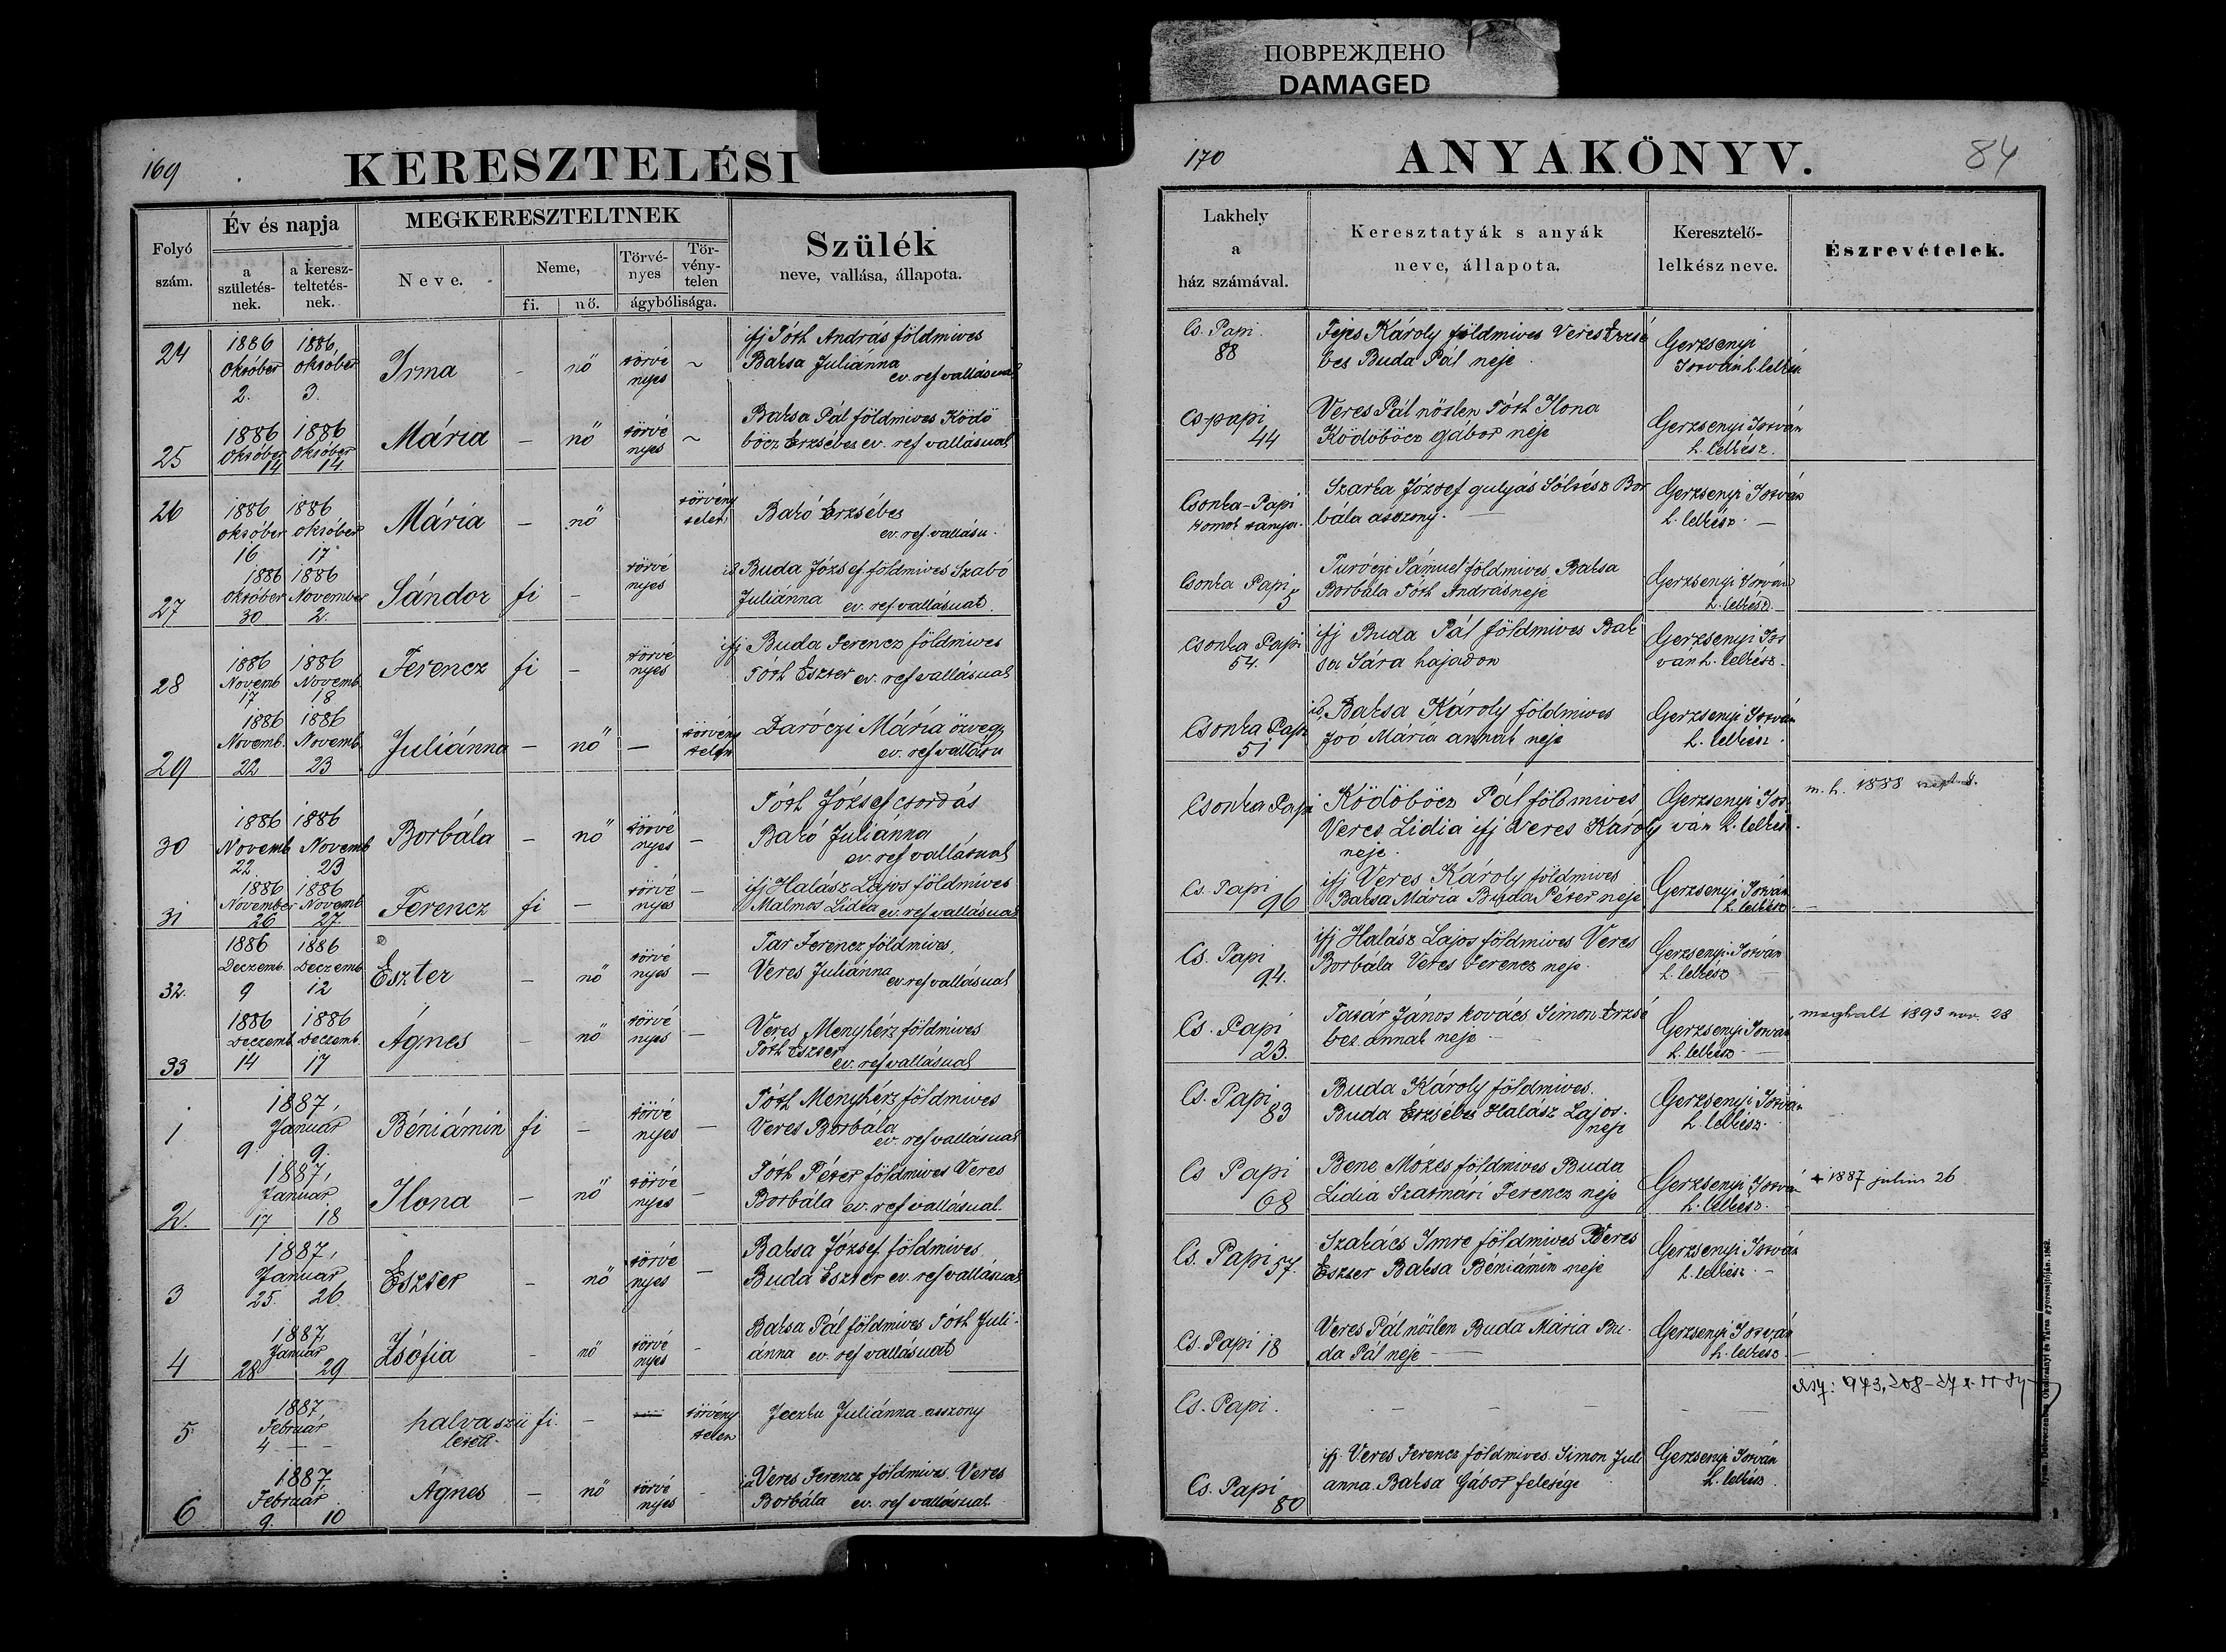 ПОВРЕЖДЕНО
DAMAGED
169
KERESZTELÉSI
Folyó szám.
Év és napja
a születés-nek.
a keresz-teltetés-nek.
MEGKERESZTELTNEK
Neve.
Neme,
fi.
nő.
Törvé-nyes
Tör-vény-telen
ágybólisága.
Szülék
neve, vallása, állapota.
24 1886 október 2. 1886, október 3. Irma - nő törvé nyes ~ ifj Tóth András földmives Baksa Juliánna ev. ref vallásuak
25 1886 Október 14 1886 Október 14 Mária - nő törvé nyes ~ Baksa Pál földmives Ködö böcz Erzsébet ev. ref vallásuak
26 1886 október 16 1886 október 17 Mária - nő törvény telen Bakó Erzsébet ev. ref. vallásu.
27 1886 október 30 1886 November 2. Sándor fi - törvé nyes id. Buda József földmives Szabó Juliánna ev. ref vallásuak.
28 1886 Novemb. 17 1886 Novemb. 18 Ferencz fi - törvé nyes ifj Buda Ferencz földmives Tóth Eszter ev. ref vallásuak
29 1886 Novemb. 22 1886 Novemb. 23 Juliánna - nő - törvény telen Daróczi Mária özvegy ev. ref vallásu
30 1886 Novemb 22 1886 Novemb 23 Borbála - nő törvé nyes - Tóth József csordás Bakó Juliánna ev. ref vallásuak
31 1886 November 26 1886 Novemb 27. Ferencz fi - törvé nyes - ifj Halász Lajos földmives Malmos Lidia ev. ref vallásuak
32. 1886 Deczemb. 9 1886 Deczemb 12 Eszter - nő törvé nyes - Tar Ferencz földmives, Veres Juliánna ev ref vallásuak
33 1886 Deczemb. 14 1886 Deczemb. 17 Ágnes - nő törvé nyes - Veres Menyhért földmives Tóth Eszter ev. ref vallásuak
1 1887, Január 9. 9. Béniámin fi - törvé nyes - Tóth Menyhért földmives Veres Borbála ev. ref vallásuak
2. 1887, Január 17 18 Ilona - nő törvé nyes - Tóth Péter földmives Veres Borbála ev. ref vallásuak.
3 1887, Január 25. 26. Eszter - nő törvé nyes - Baksa József földmives Buda Eszter ev. ref vallásuak
4 1887, Január 28 29 Zsófia - nő törvé nyes - Baksa Pál földmives Tóth Juli-ánna ev. ref vallásuak
5. 1887 Február 4 - - halva szü letett. fi. - törvény telen Juliánna asszony
6 1887, Február 9. 10 Ágnes - nő törvé nyes - id Veres Ferencz földmives. Veres Borbála ev. ref vallásuak
170
ANYAKÖNYV.
84
Lakhely a ház számával.
Keresztatyák s anyák
neve, állapota.
Keresztelő-lelkész neve.
Észrevételek.
Cs. Papi. 88 Károly földmives Veres Erzsé bet Buda Pál neje Gerzsenyi István h. lelkész
Cs-papi 44 Veres Pál nőtlen Tóth Ilona Ködöböcz gábor neje Gerzsenyi István h. lelkész.
Csonka-Papi Homok tanya. Szarka József gulyás Sóltész Bor bála asszony. - Gerzsenyi István h. lelkész. -
Csonka Papi 5 Turóczi Sámuel földmives, Baksa Borbála Tóth András neje Gerzsenyi István h. lelkész.
Csonka Papi 54. ifj Buda Pál földmives Bak sa Sára hajadon Gerzsenyi Ist ván h. lelkész.
Csonka Papi 51 id, Baksa Károly földmives Joó Mária annak neje Gerzsenyi István h. lelkész.
Csonka Papi Ködöböcz Pál földmives Veres Lidia ifj Veres Károly neje. Gerzsenyi Ist ván h. lelkész. m. h. 1888
Cs. Papi 96 ifj Veres Károly földmives Baksa Mária Buda Péter neje Gerzsenyi István h. lelkész -
Cs. Papi 94. ifj Halász Lajos földmives Veres Borbála Veres Ferencz neje. Gerzsenyi István h. lelkész -
Cs. Papi 23. Tatár János kovács Simon Erzsé bet annak neje - Gerzsenyi István h. lelkész - meghalt 1893 nov. 28
Cs. Papi 83 Buda Károly földmives. Buda Erzsébet Halász Lajos. neje Gerzsenyi István h. lelkész.
Cs Papi 68 Bene Mózes földmives Buda Lidia Szatmári Ferencz neje Gerzsenyi István h. lelkész. + 1887 julius 26
Cs. Papi 57. Szakács Imre földmives Veres Eszter Baksa Béniámin neje Gerzsenyi István h. lelkész. -
Cs. Papi 18 Veres Pál nőtlen Buda Mária Bu-da Pál neje - Gerzsenyi István h. lelkész -
Cs. Papi. - - - - -
Cs. Papi 80 ifj. Veres Ferencz földmives. Simon Juli anna. Baksa Gábor felesége Gerzsenyi István h. lelkész.